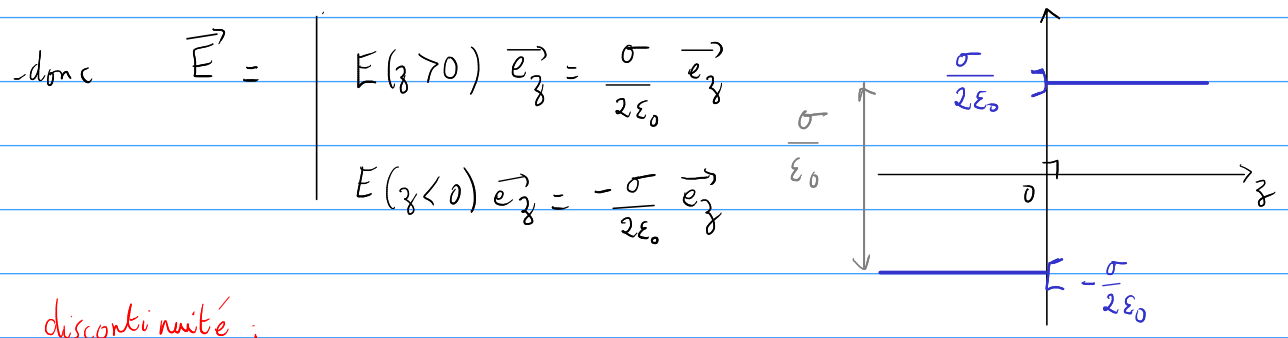 donc $\overrightarrow{E} =$ | $E(z>0)\ \overrightarrow{e_z} = \frac{\sigma}{2\varepsilon_0}\ \overrightarrow{e_z}$
$E(z<0)\ \overrightarrow{e_z} = -\frac{\sigma}{2\varepsilon_0}\ \overrightarrow{e_z}$
$\frac{\sigma}{2\varepsilon_0}$
$\frac{\sigma}{\varepsilon_0}$
0
z
$-\frac{\sigma}{2\varepsilon_0}$
discontinuité :